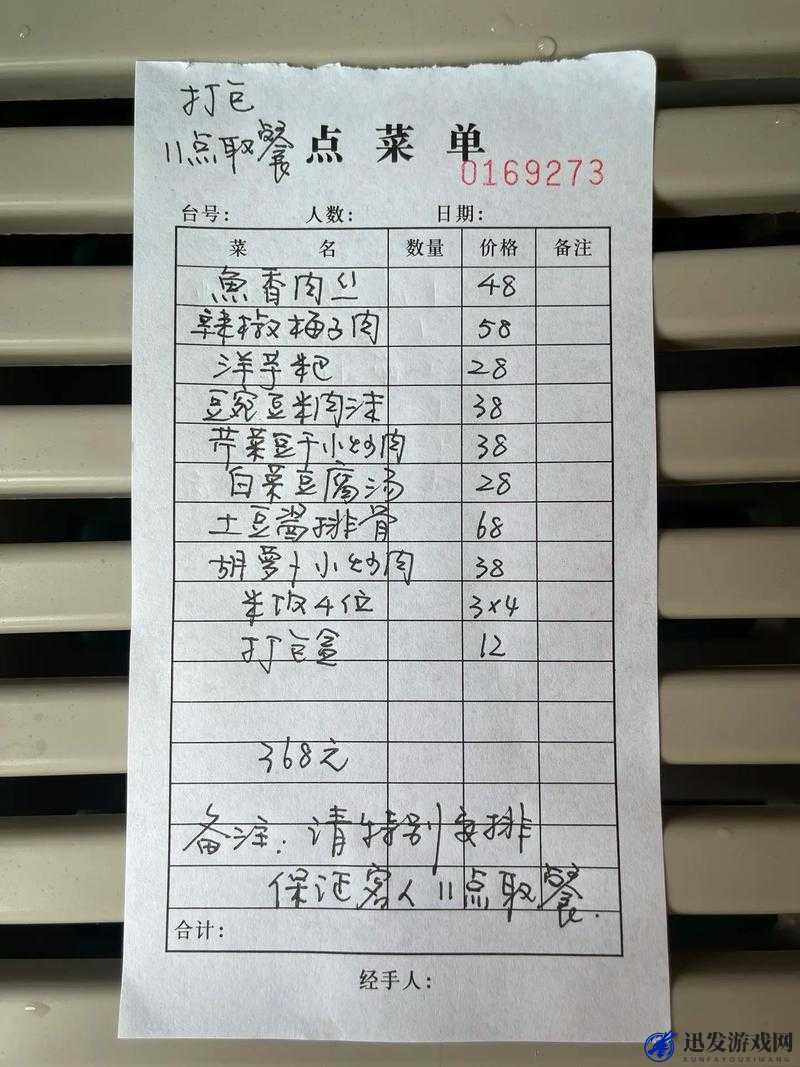 打包
11点取餐
点菜单
0169273
台号: 人数: 日期:
菜 名 数量 价格 备注
魚香肉丝 48
辣椒梅子肉 58
洋芋粑 28
豆宛豆米肉沫 38
芹菜豆干小炒肉 38
白菜豆腐汤 28
土豆酱排骨 68
胡萝卜小炒肉 38
米饭4位 3×4
打包盒 12
368元
备注:请特别安排
保证客人11点取餐.
合计:
经手人:
迅发游戏网
XUNFAYOUXIWANG